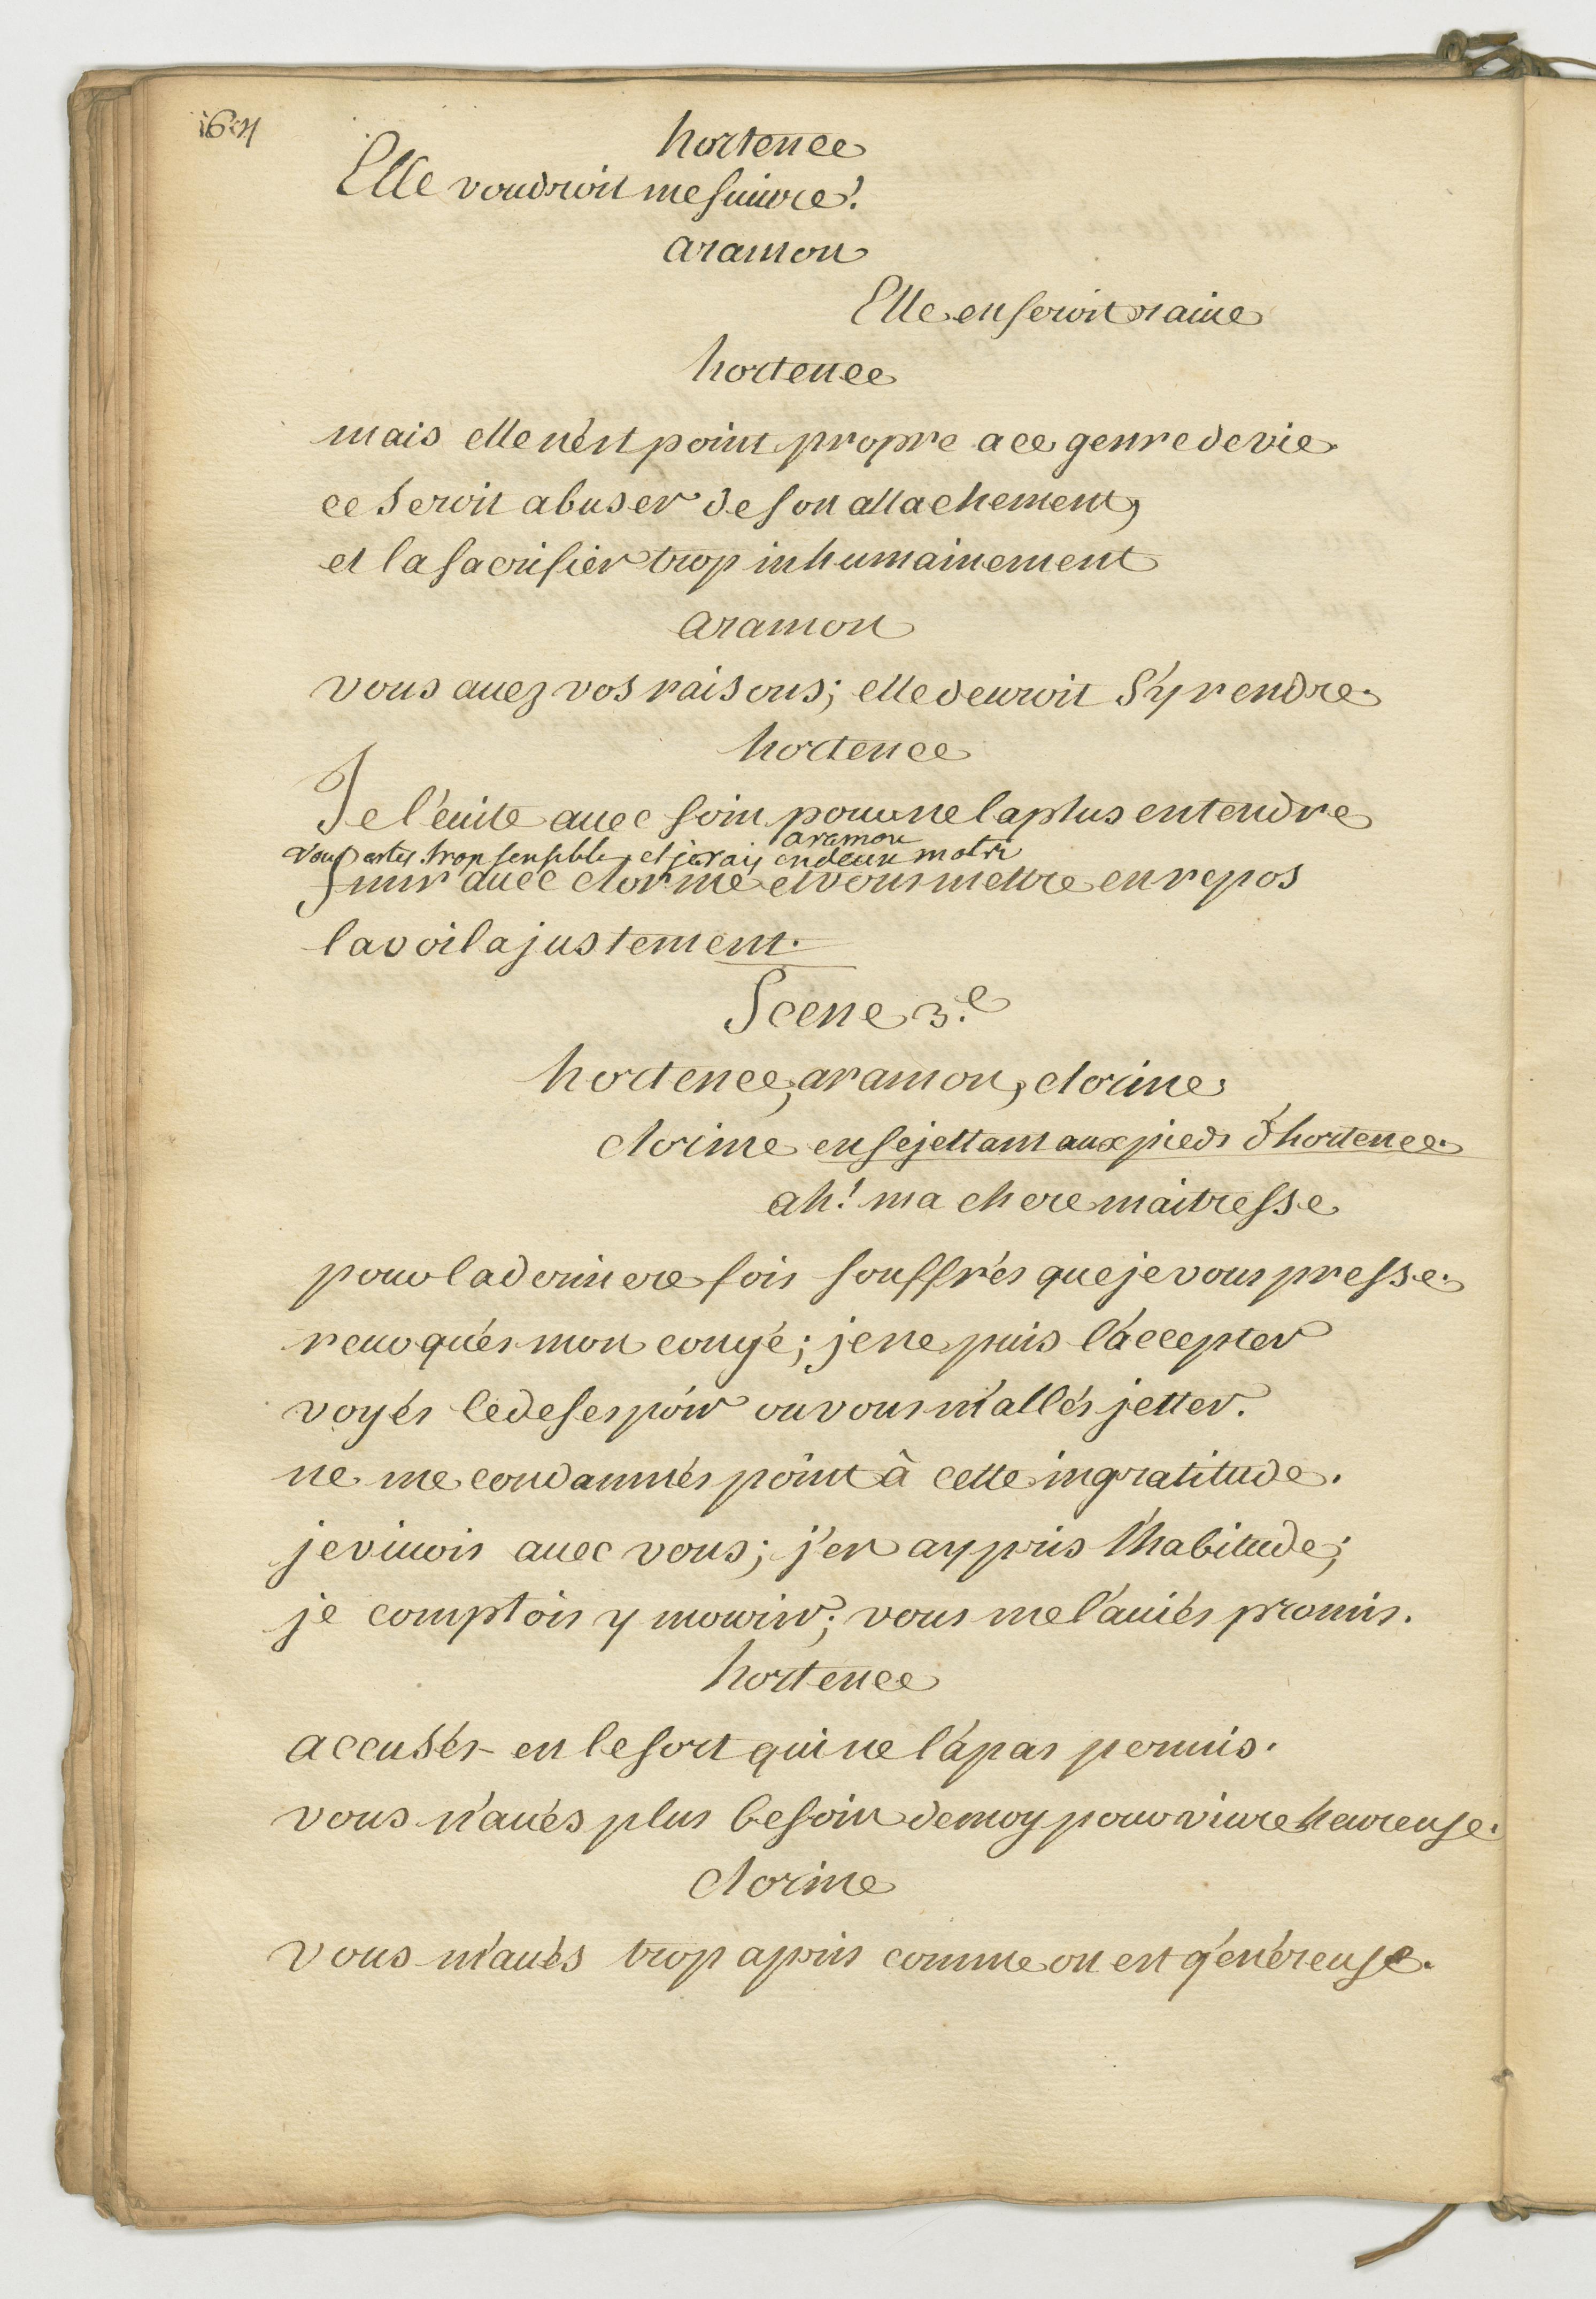 hortence
Elle voudroit me suivre!
aramon
Elle en seroit raine
hortence
mais elle n'est point propre a ce genre de vie
ce seroit abuser de son attachement,
et la sacrifier trop inhumainement
aramon
vous auez vos raisons; elle deuroit s'y rendre.
hortence
Je l'euite auec soin pour ne la plus entendre
aramon
vous estes trop sensible, et je vais en deux mots
finir auec clorine et vous mettre en repos
la voila justement.
Scene 3.e
hortence, aramon, clorine.
clorine en se jettant aux pieds d'hortence.
ah! ma chere maitresse
pour la derniere fois souffrés que je vous presse.
reuoqués mon congé; je ne puis l'accepter
voyés le desespoir ou vous m'allés jetter.
ne me condamnés point à cette ingratitude.
je viuois auec vous; j'en ay pris l'habitude;
je comptois y mourir; vous me l'auiés promis.
hortence
accusés-en le sort qui ne l'a pas permis.
vous n'aués plus besoin de moy pour viure heureuse.
clorine
vous m'aués trop apris comme on est généreuse.